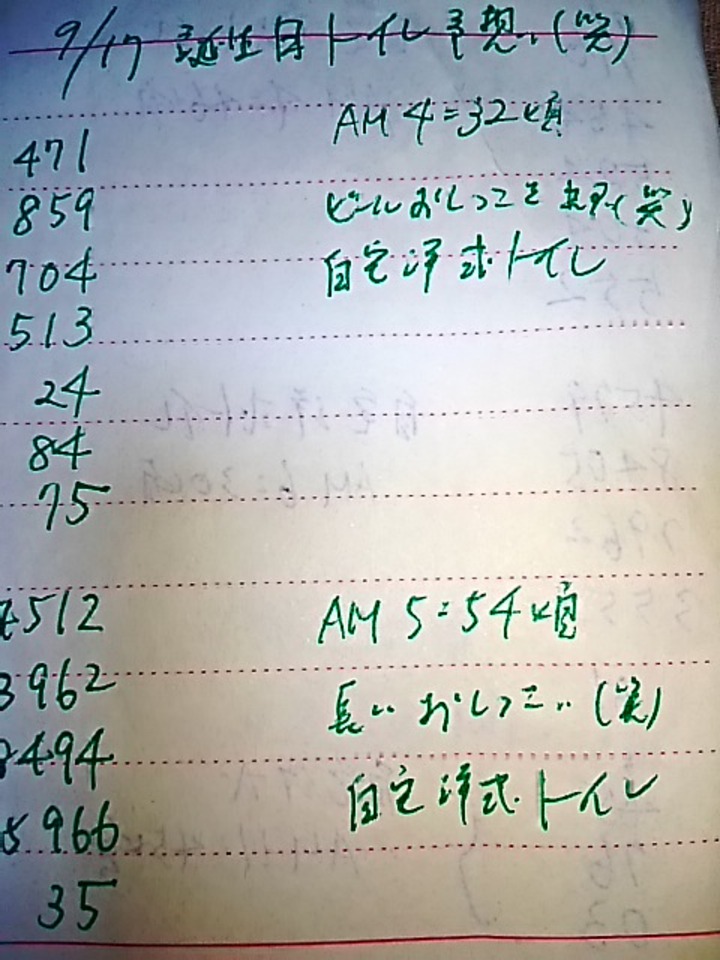 9/17 誕生日トイレ予想‥(笑)
AM 4:32頃
471
859 ビールおしっこを(笑)
704 自宅洋式トイレ
513
24
84
75
512 AM 5:54頃
3962 長いおしっこ‥(笑)
8494
5966 自宅洋式トイレ
35